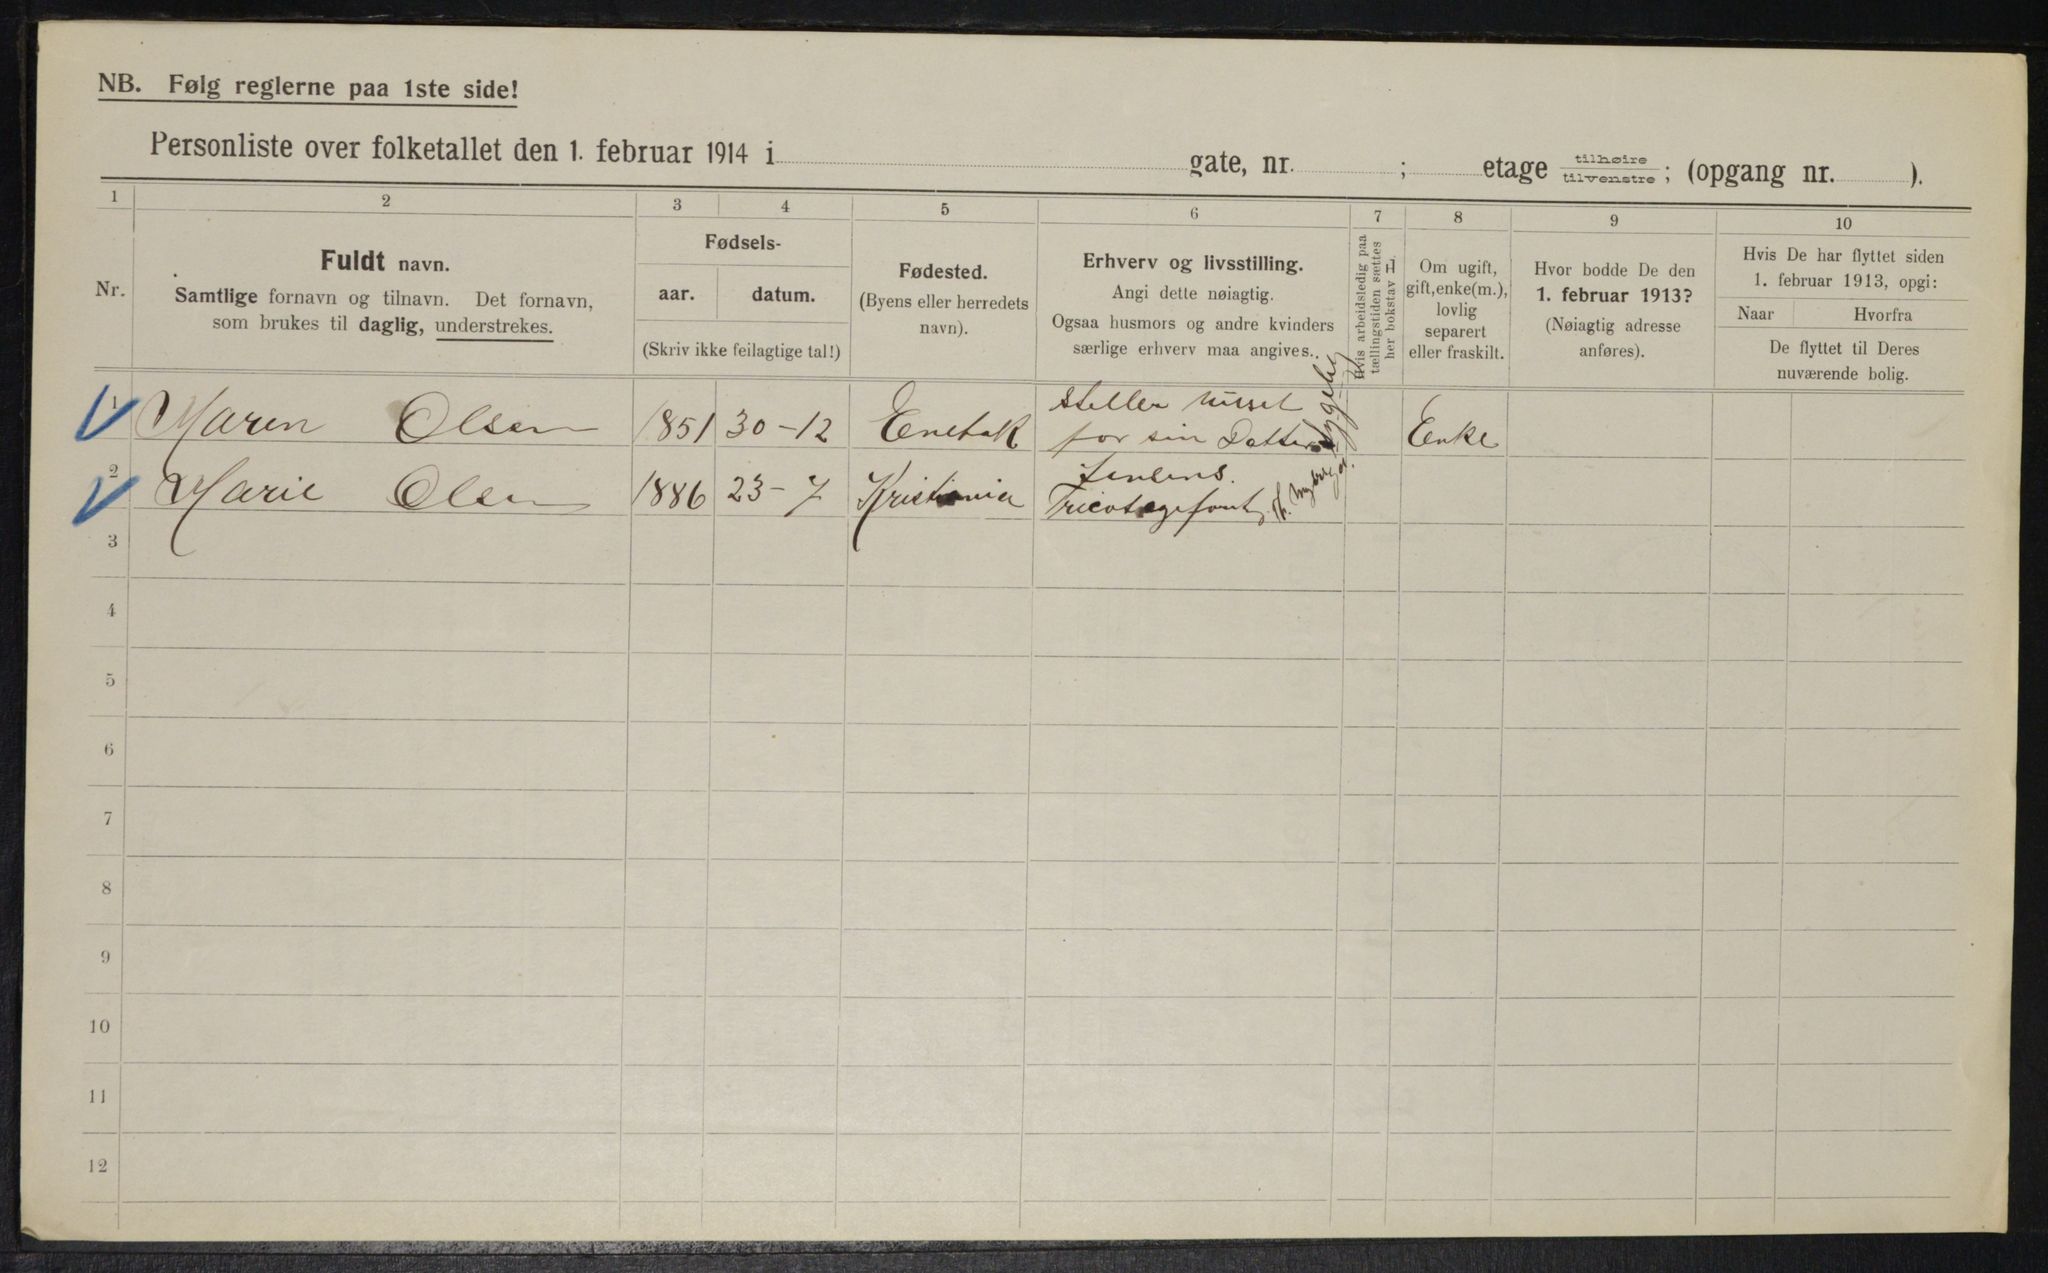 NB. Følg reglerne paa 1ste side!
Personliste over folketallet den 1. februar 1914 i gate, nr. ; etage tilhøire tilvenstre; (opgang nr. ).
1 2 3 4 5 6 7 8 9 10
Nr.
Fuldt navn.
Samtlige fornavn og tilnavn. Det fornavn,
som brukes til daglig, understrekes.
Fødsels-
aar. datum.
(Skriv ikke feilagtige tal!)
Fødested.
(Byens eller herredets
navn).
Erhverv og livsstilling.
Angi dette nøiagtig.
Ogsaa husmors og andre kvinders
særlige erhverv maa angives.
Hvis arbeidsledig paa
tællingstiden sættes
her bokstav L
Om ugift,
gift, enke(m.),
lovlig
separert
eller fraskilt.
Hvor bodde De den
1. februar 1913?
(Nøiagtig adresse
anføres).
Hvis De har flyttet siden
1. februar 1913, opgi:
Naar Hvorfra
De flyttet til Deres
nuværende bolig.
1 Maren Olsen 1851 30-12 Enebak steller huset
for sin Datter Enke
2 Marie Olsen 1886 23-7 Kristiania Jensens.
Tricotagefont
3
4
5
6
7
8
9
10
11
12